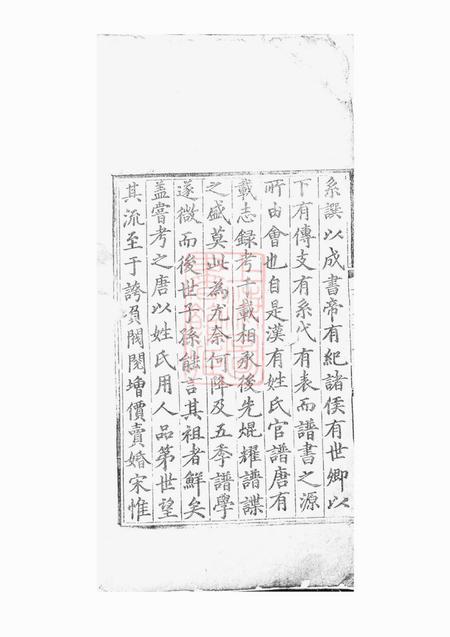 系譔以成書帝有紀諸侯有世卿以
下有傳支有系代有表而譜書之源
所由會也自是漢有姓氏官譜唐有
載志録考千載相承後先焜耀譜諜
之盛莫此為尤奈何降及五季譜學
遂微而後世子孫能言其祖者鮮矣
盖嘗考之唐以姓氏用人品第世望
其流至于誇負閥閱增價賣婚宋惟